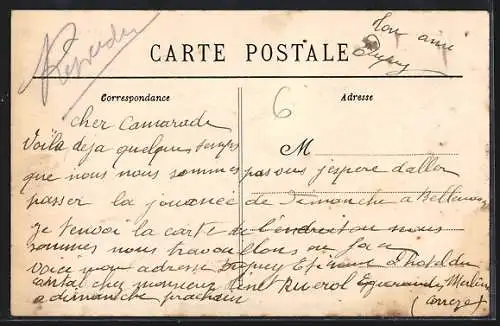 Ton ami
CARTE POSTALE
Correspondance
Adresse
6
M
cher Camarade
Voila deja quelque temps
que nous nous sommes pas vus j'espere d'aller
passer la journée de Dimanche a
je t'envoi la carte de l'endroit ou nous
sommes nous travaillons en face
voici mon adresse Dupuy Etienne a l'hotel du
cantal chez monsieur
a dimanche prochain
(Correze)